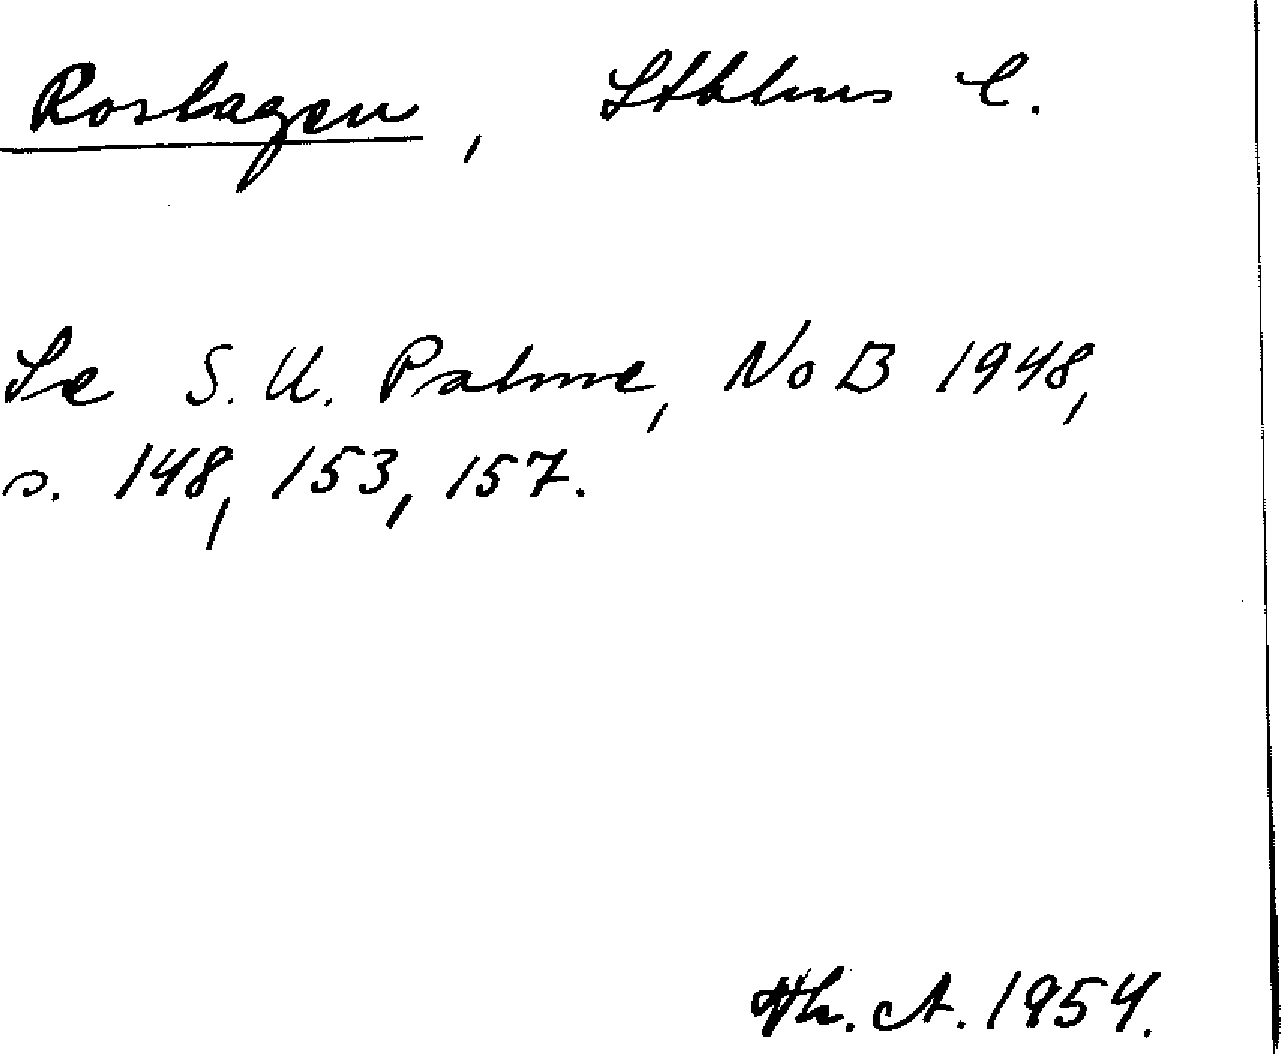 Roslagen, Sthlms l.
Se S. U. Palme, NoB 1948,
s. 148, 153, 157.
Th. A. 1954.